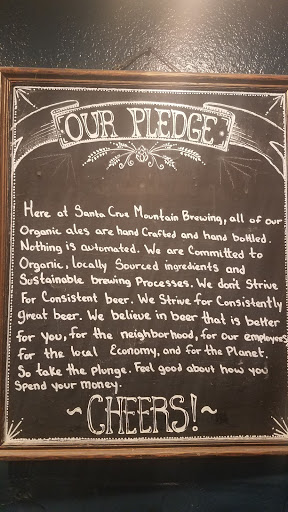 OUR PLEDGE
Here at Santa Cruz Mountain Brewing, all of our
Organic ales are hand Crafted and hand bottled.
Nothing is automated. We are Committed to
Organic, locally Sourced ingredients and
Sustainable brewing Processes. We don't Strive
For Consistent beer. We Strive for Consistently
great beer. We believe in beer that is better
for you, for the neighborhood, for our employees
for the local Economy, and for the Planet.
So take the plunge. Feel good about how you
Spend your money.
~CHEERS!~